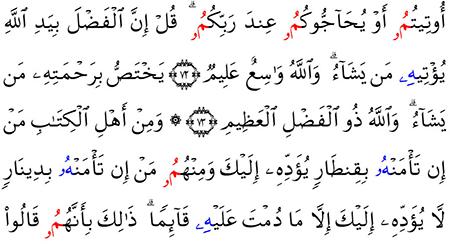 أُوتِيتُمُۥ أَوْ يُحَآجُّوكُمُۥ عِندَ رَبِّكُمُۥ ۗ قُلْ إِنَّ ٱلْفَضْلَ بِيَدِ ٱللَّهِ
يُؤْتِيهِۦ مَن يَشَآءُ ۗ وَٱللَّهُ وَٰسِعٌ عَلِيمٌ ﴿٧٢﴾ يَخْتَصُّ بِرَحْمَتِهِۦ مَن
يَشَآءُ ۗ وَٱللَّهُ ذُو ٱلْفَضْلِ ٱلْعَظِيمِ ﴿٧٣﴾ ۞ وَمِنْ أَهْلِ ٱلْكِتَٰبِ مَنْ
إِن تَأْمَنْهُۥ بِقِنطَارٍ يُؤَدِّهِۦ إِلَيْكَ وَمِنْهُمُۥ مَنْ إِن تَأْمَنْهُۥ بِدِينَارٍ
لَّا يُؤَدِّهِۦ إِلَيْكَ إِلَّا مَا دُمْتَ عَلَيْهِۦ قَآئِمًا ۗ ذَٰلِكَ بِأَنَّهُمُۥ قَالُوا۟